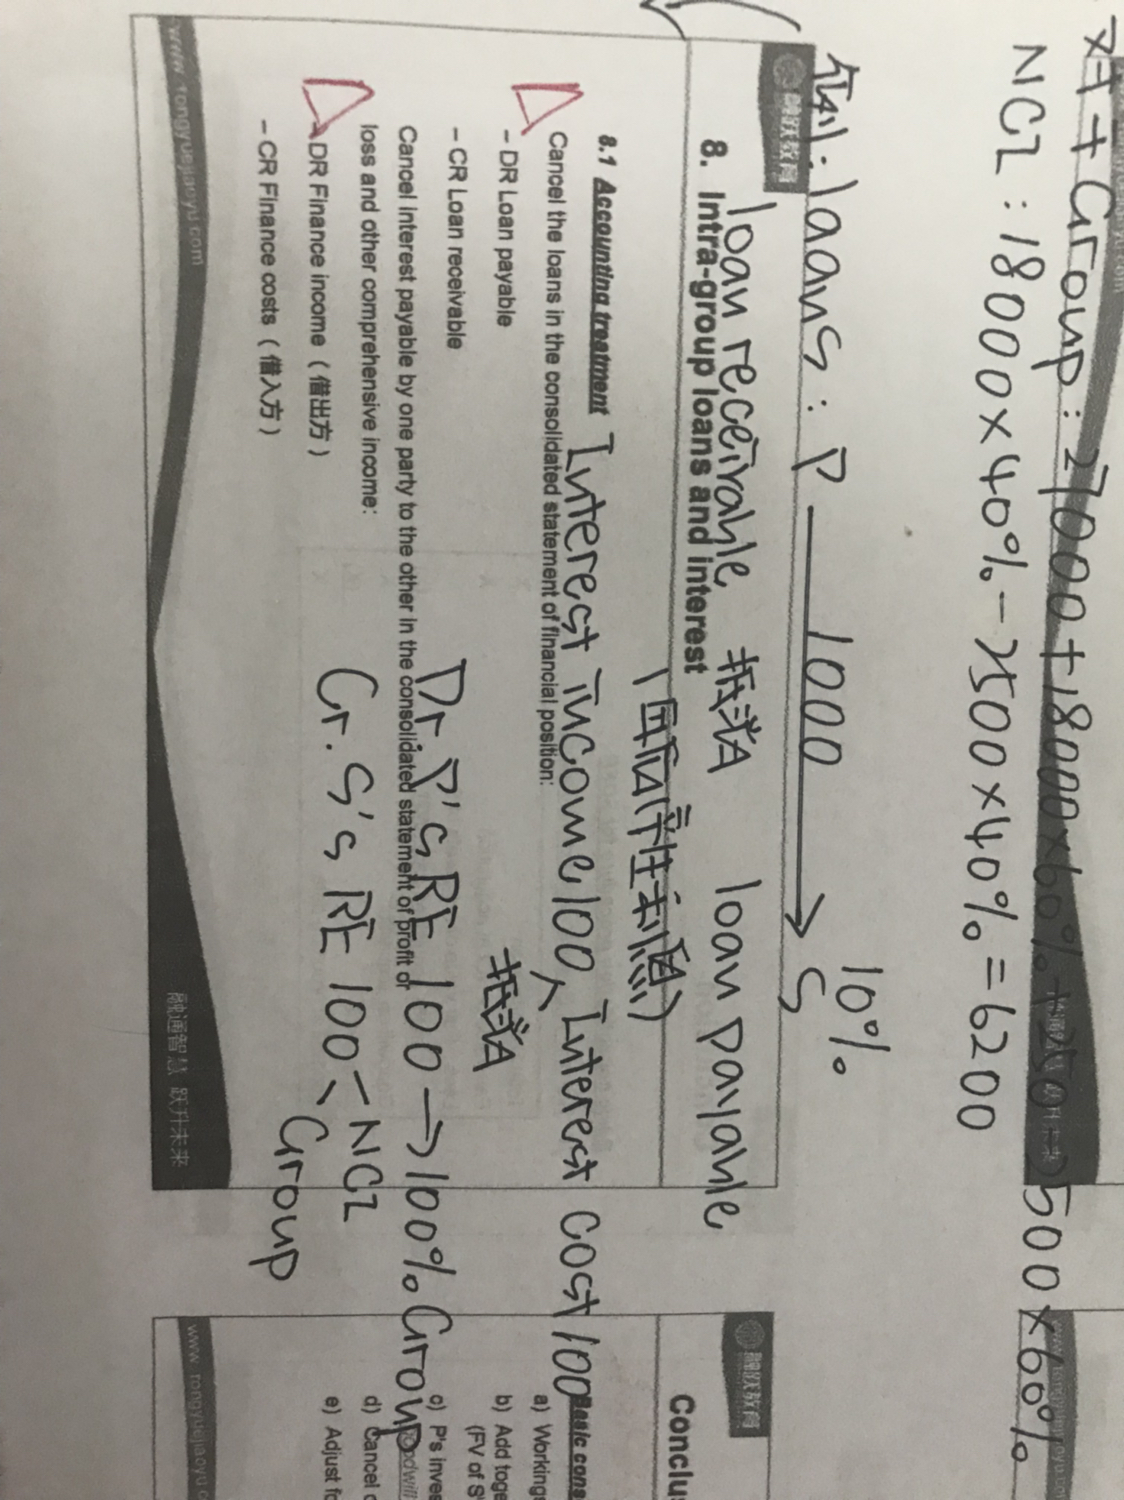 对+Group: 27000+18000×60%+250-2500×60%
NCI: 18000×40%-2500×40%=6200
例: loans: P → S
1000
10%
loan receivable 抵消 loan payable
8. Intra-group loans and interest
(因为有利息)
8.1 Accounting treatment
Interest income 100, Interest cost 100
Cancel the loans in the consolidated statement of financial position:
抵消
– DR Loan payable
– CR Loan receivable
Dr. P's RE 100 → 100% Group
Cancel interest payable by one party to the other in the consolidated statement of profit or
loss and other comprehensive income:
Cr. S's RE 100 NCI
Group
DR Finance income（借出方）
– CR Finance costs（借入方）
www.rongyuejiaoyu.com
融通智慧 跃升未来
Conclu
Basic cons
a) Working
b) Add toge
(FV of S'
c) P's inves
d) Cancel
e) Adjust fo
www.rongyuejiaoyu.c